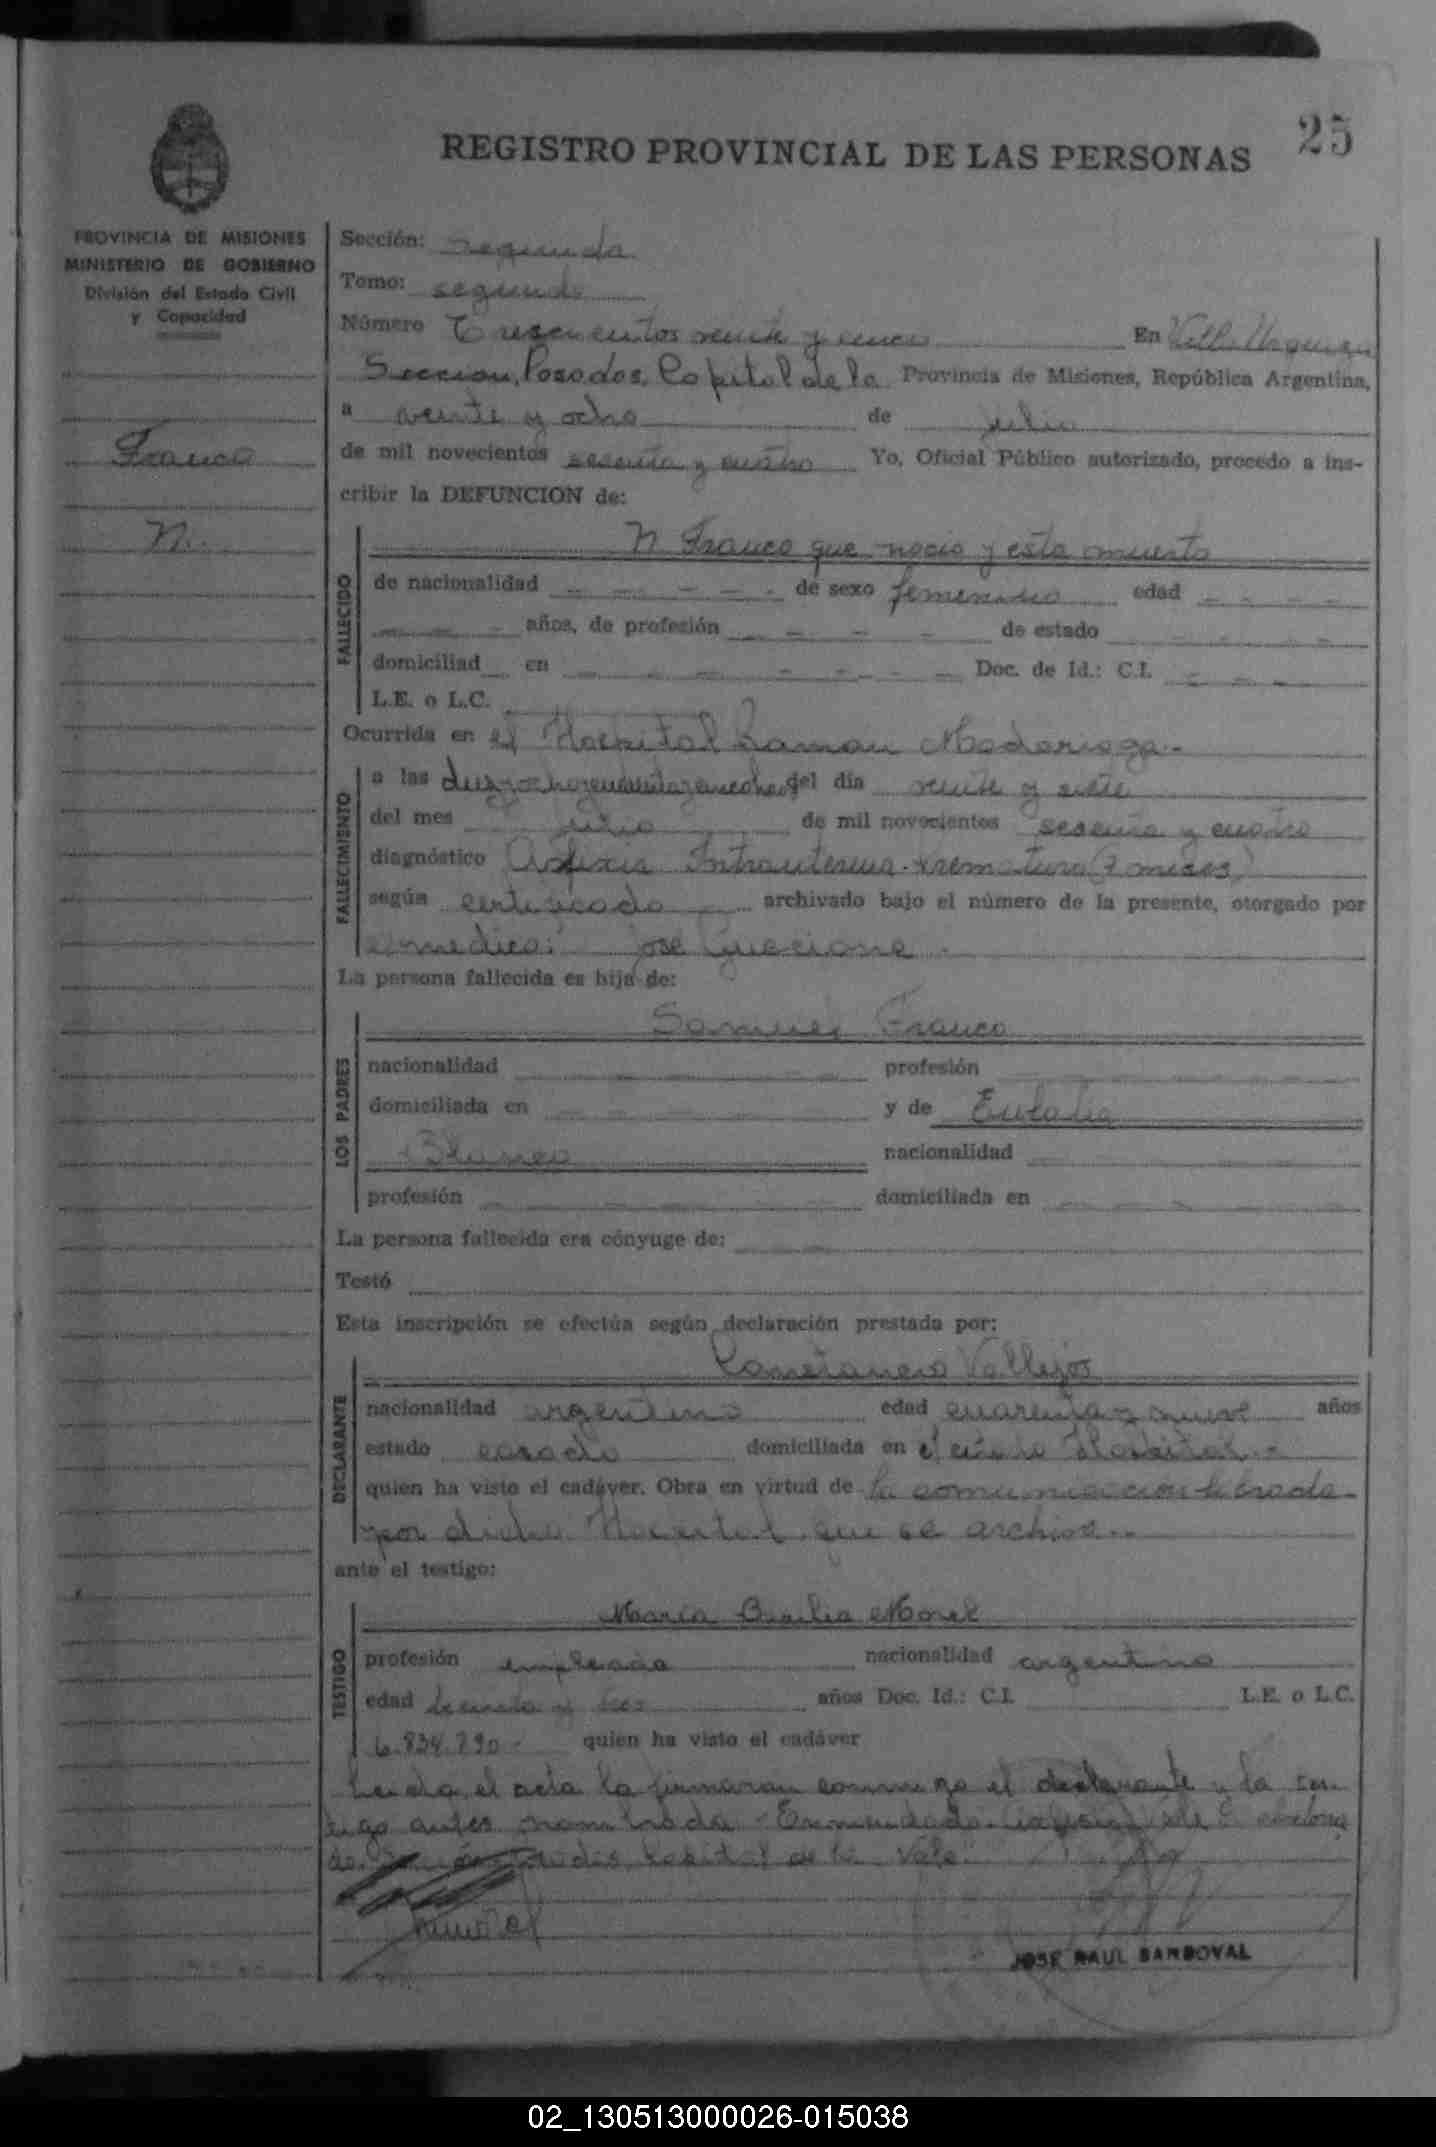 25
REGISTRO PROVINCIAL DE LAS PERSONAS
PROVINCIA DE MISIONES
MINISTERIO DE GOBIERNO
División del Estado Civil
y Capacidad
Franco
N.
Sección: segunda
Tomo: segundo
Número Trescientos veinte y cinco En Villa Urquiza
Seccion, Posadas, Capital de la Provincia de Misiones, República Argentina,
a veinte y ocho de julio
de mil novecientos sesenta y cuatro Yo, Oficial Público autorizado, procedo a ins-
cribir la DEFUNCION de:
FALLECIDO
N Franco que nacio y esta muerta
de nacionalidad - - - - - de sexo femenino edad - - - -
- - - años, de profesión - - - - de estado - - - -
domiciliad en - - - - - - - Doc. de Id.: C.I. - - -
L.E. o L.C.
Ocurrida en el Hospital Ramon Madariaga.-
FALLECIMIENTO
a las del día veinte y siete
del mes julio de mil novecientos sesenta y cuatro
diagnóstico Asfixia Intrauterina. Prematura (7 meses)
según certificado archivado bajo el número de la presente, otorgado por
el medico: José Guccione
La persona fallecida es hija de:
LOS PADRES
Samuel Franco
nacionalidad - - - - - profesión
domiciliada en - - - - y de Eulalia
Blanco
nacionalidad - - - - -
profesión - - - - - domiciliada en - - - - -
La persona fallecida era cónyuge de: - - -
Testó
Esta inscripción se efectúa según declaración prestada por:
DECLARANTE
Vallejos
nacionalidad argentino edad cuarenta y nueve años
estado casado domiciliada en el citado Hospital.-
quien ha visto el cadáver. Obra en virtud de la comunicacion librada
por dicho Hospital que se archiva.-
ante el testigo:
TESTIGO
María Basilia Morel
profesión empleada nacionalidad argentina
edad treinta y tres años Doc. Id.: C.I. L.E. o L.C.
6.834.290.- quien ha visto el cadáver
Leida el acta la firmaran conmigo el declarante y la tes-
tigo antes nombrada - Enmendado:
Capital de la Vale
JOSE RAUL SANDOVAL
02_130513000026-015038